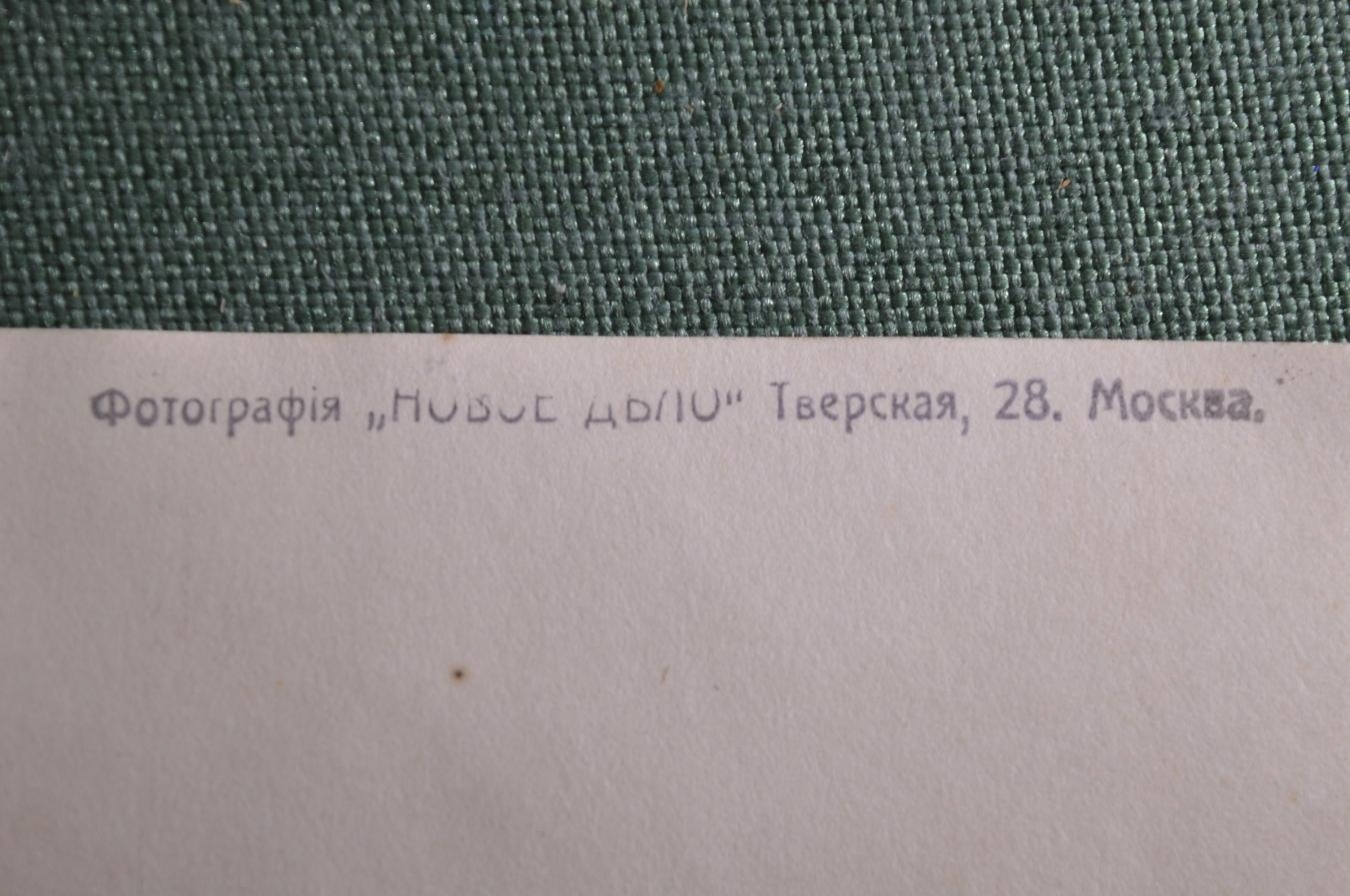 Фотографія „НОВОЕ ДѢЛО“ Тверская, 28. Москва.